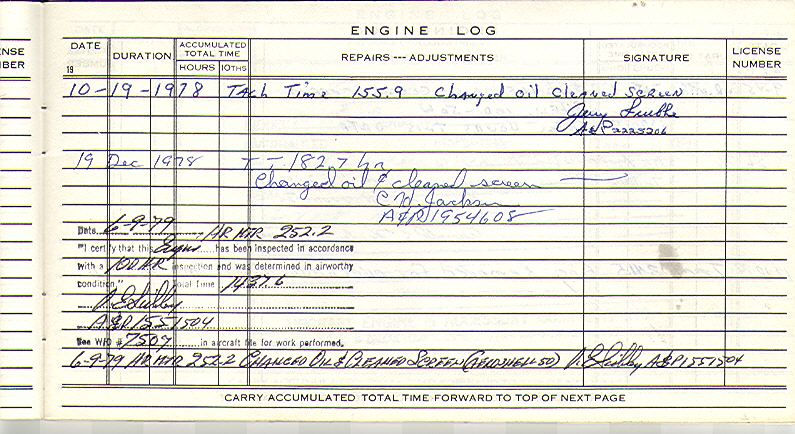 ENGINE LOG
NSE
BER
DATE
19
DURATION
ACCUMULATED TOTAL TIME
HOURS 10THS
REPAIRS --- ADJUSTMENTS
SIGNATURE
LICENSE NUMBER
10-19-1978 TACh Time 155.9 Changed oil cleaned screen
Jerry
A&P 2225206
19 Dec 1978 TT 182.7 hr
Changed oil & cleaned screen
C. W. Jackson
A&P 1954608
Date 6-9-79 HR MTR 252.2
"I certify that this Engine has been inspected in accordance
with a 100 HR inspection and was determined in airworthy
condition." Total Time 1437.6
A&P 1551504
See W/O # 7507 in aircraft file for work performed.
6-9-79 HR MTR 252.2 CHANGED OIL & CLEANED SCREEN (AEROSHELL 50) A&P 1551504
CARRY ACCUMULATED TOTAL TIME FORWARD TO TOP OF NEXT PAGE